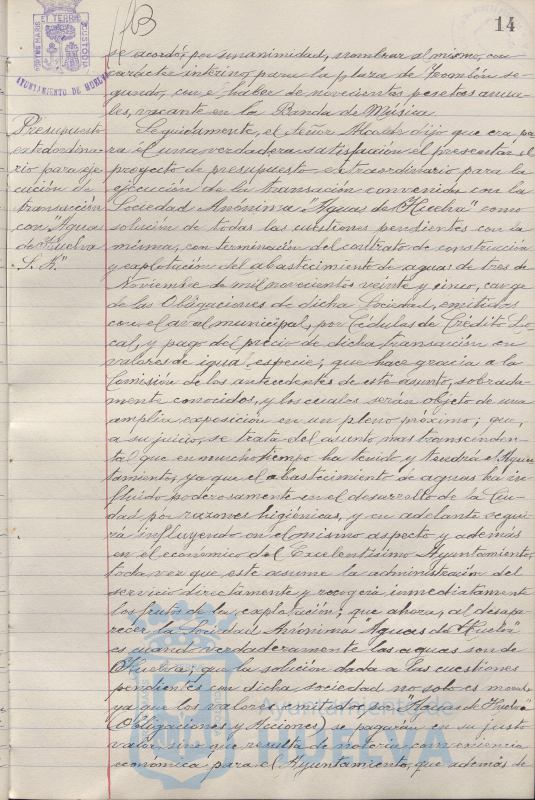 14
PORTUS MARIS ET TERRAE CUSTODIA
AYUNTAMIENTO DE HUELVA
se acordó, por unanimidad, nombrar al mismo, con
carácter interino, para la plaza de Trombón se-
gundo, con el haber de novecientas pesetas anua-
les, vacante en la Banda de Música.
Presupuesto
extraordina-
rio para eje-
cución de
transacción
con "Aguas
de Huelva
S. A."
Seguidamente, el Señor Alcalde dijo que era, pa-
ra él una verdadera satisfacción el presentar el
proyecto de presupuesto extraordinario para la
ejecución de la transacción convenida con la
Sociedad Anónima "Aguas de Huelva" como
solución de todas las cuestiones pendientes con la
misma, con terminación del contrato de construcción
y explotación del abastecimiento de aguas de tres de
Noviembre de mil novecientos veinte y cinco, canje
de las Obligaciones de dicha Sociedad, emitidas
con el aval municipal, por Cédulas de Crédito Lo-
cal, y pago del precio de dicha transacción en
valores de igual especie; que hace gracia a la
Comisión de los antecedentes de este asunto, sobrada-
mente conocidos, y los cuales serán objeto de una
amplia exposición en un pleno próximo; que,
a su juicio, se trata del asunto mas transcenden-
tal que en mucho tiempo ha tenido y tendrá el Ayun-
tamiento, ya que el abastecimiento de aguas ha in-
fluido poderosamente en el desarrollo de la Ciu-
dad por razones higiénicas, y en adelante segui-
rá influyendo en el mismo aspecto y además
en el económico del Excelentísimo Ayuntamiento,
toda vez que este asume la administración del
servicio directamente y recogerá inmediatamente
los frutos de la explotación; que ahora, al desapa-
recer la Sociedad Anónima "Aguas de Huelva"
es cuando verdaderamente las aguas son de
Huelva; que la solución dada a las cuestiones
pendientes con dicha sociedad no solo es moral
ya que los valores emitidos por "Aguas de Huelva"
(Obligaciones y Acciones) se pagarán en su justo
valor sino que resulta de notoria conveniencia
económica para el Ayuntamiento, que además de
Ayuntamiento de
HUELVA